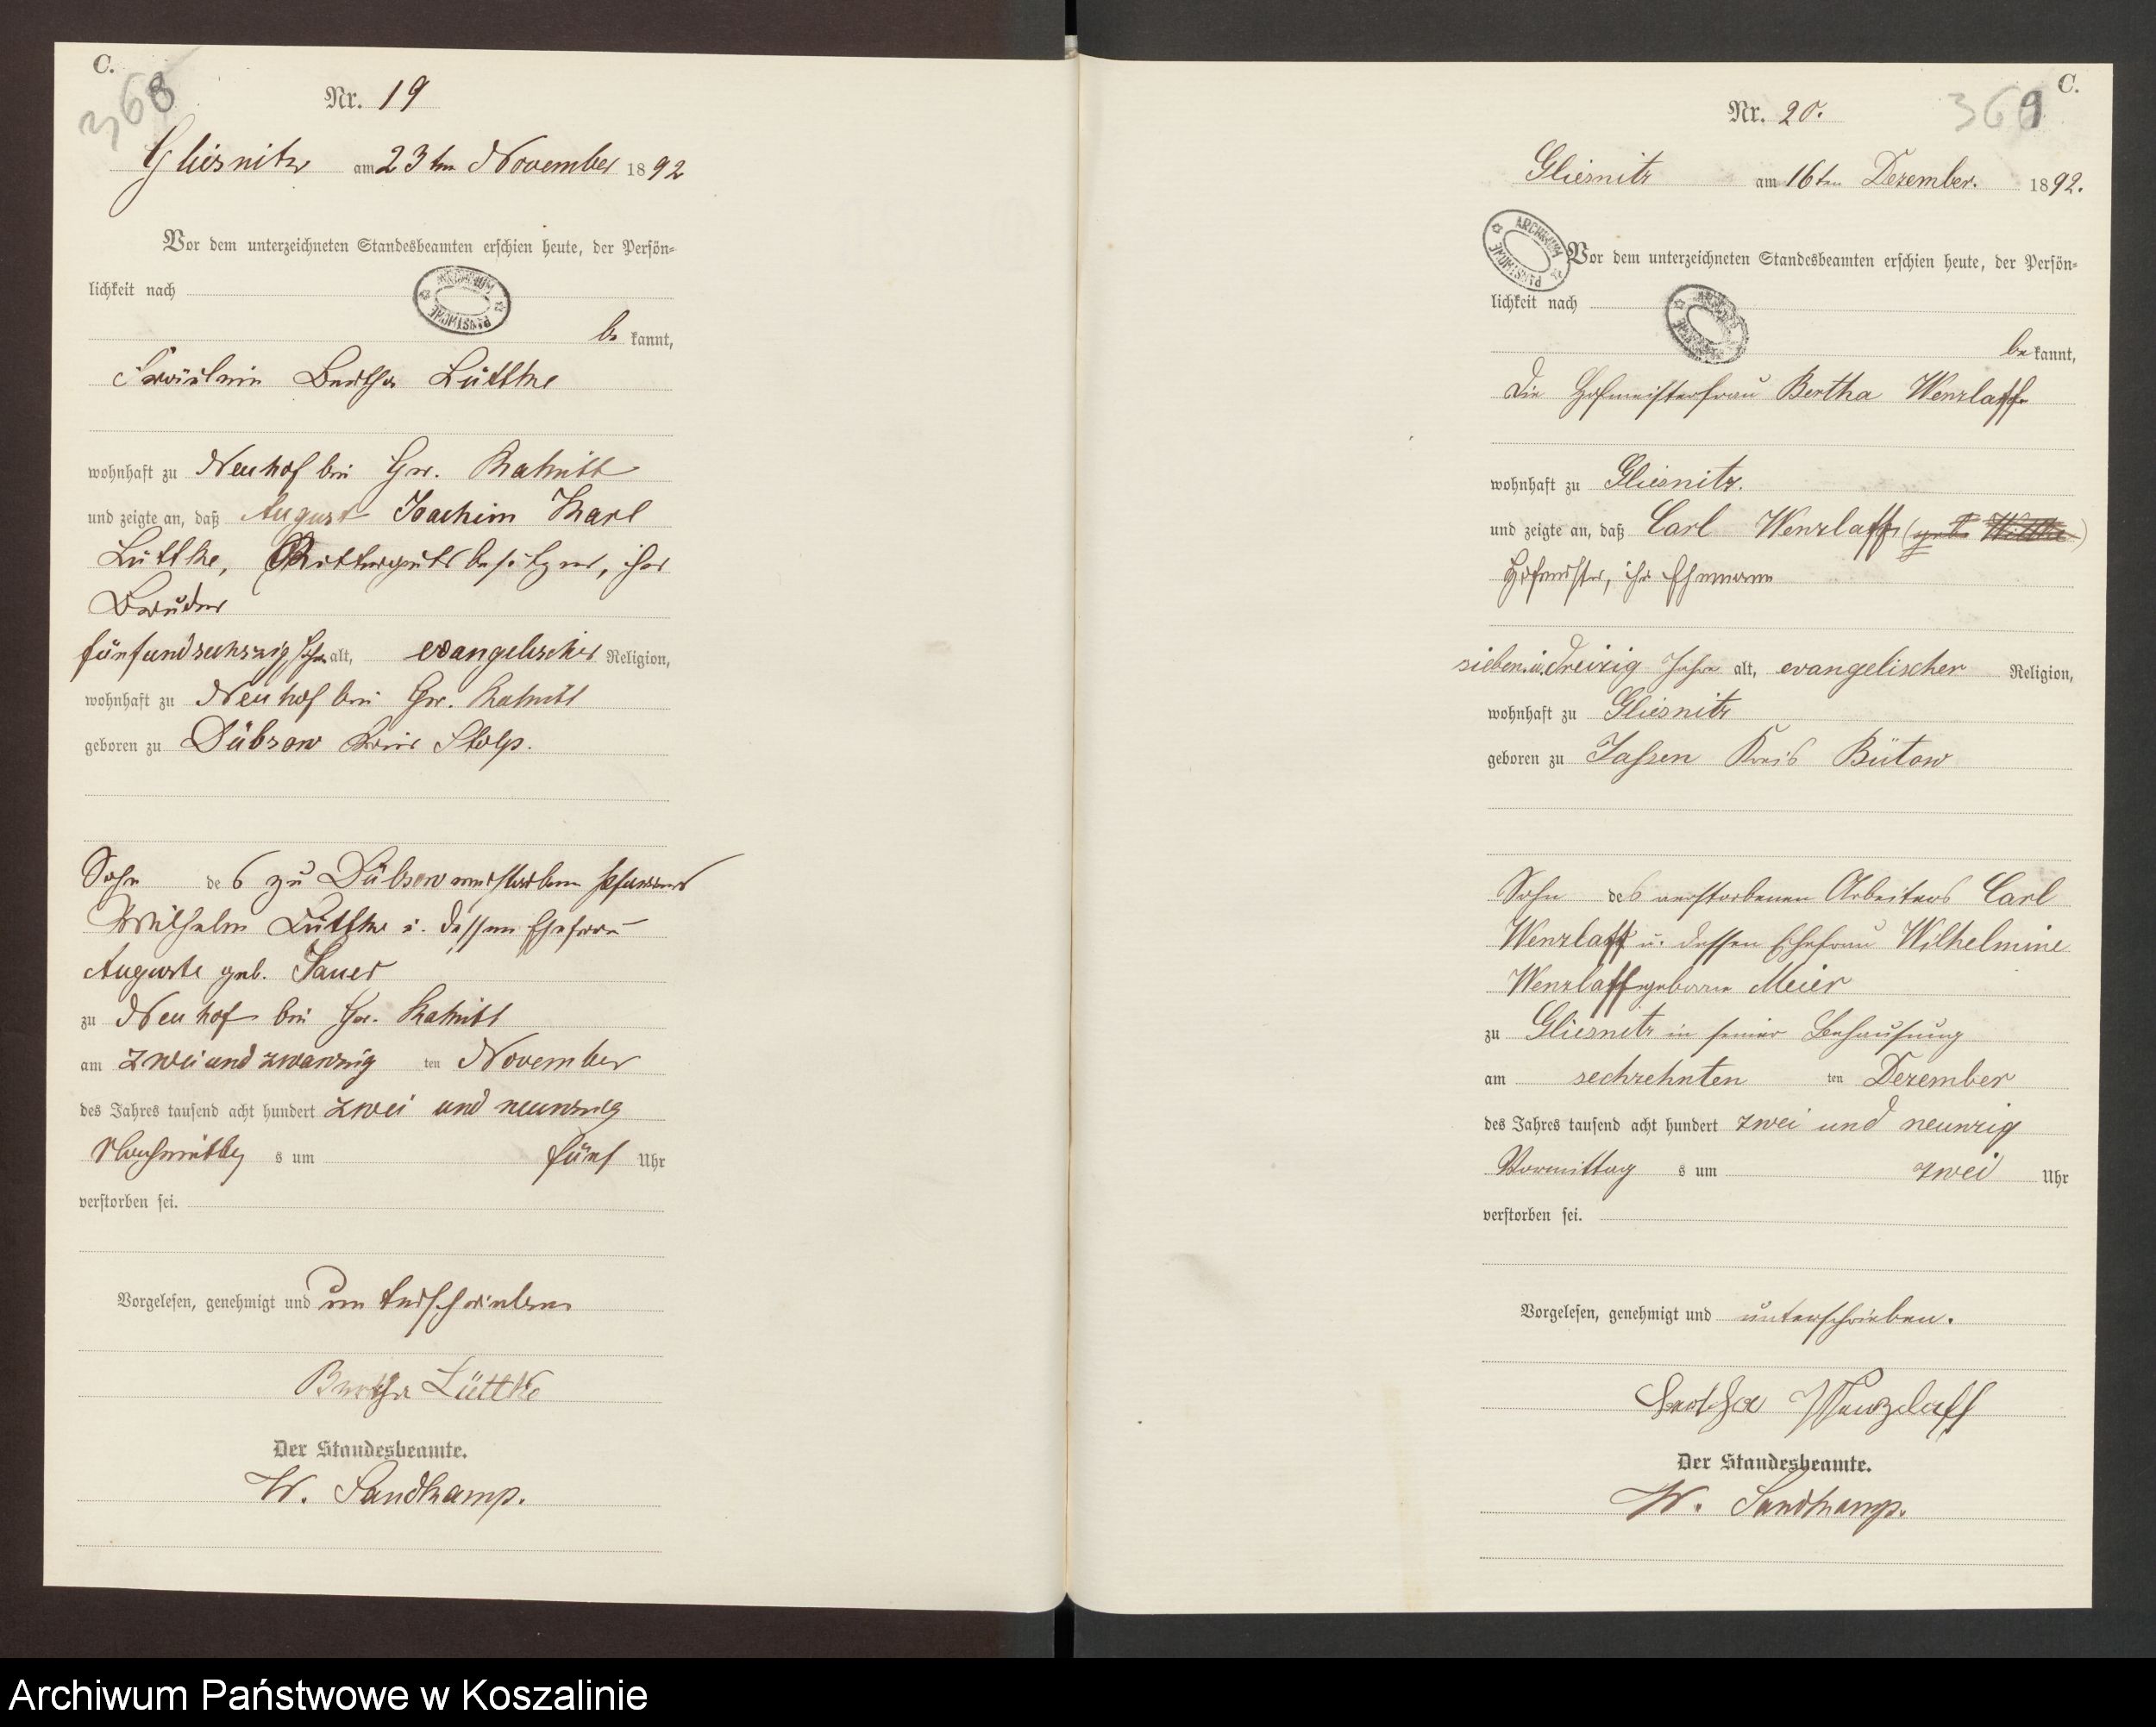 C.
368
Nr. 19
Gliesnitz am 23ten November 1892
Vor dem unterzeichneten Standesbeamten erschien heute, der Persön-
lichkeit nach
ARCHIWUM PAŃSTWOWE
be kannt,
Fräulein Bertha Lüttke
wohnhaft zu Neuhof bei Gr. Rakitt
und zeigte an, daß August Joachim Karl
Lüttke, Rittergutsbesitzer, ihr
Bruder
fünfundsechszig Jahre alt, evangelischer Religion,
wohnhaft zu Neuhof bei Gr. Rakitt
geboren zu Dübsow Kreis Stolp.
Sohn des zu Dübsow verstorbenen Pfarrers
Wilhelm Lüttke u. dessen Ehefrau
Auguste geb. Sauer
zu Neuhof bei Gr. Rakitt
am zweiundzwanzig ten November
des Jahres tausend acht hundert zwei und neunzig
Nachmittag s um fünf Uhr
verstorben sei.
Vorgelesen, genehmigt und unterschrieben
Bertha Lüttke
Der Standesbeamte.
W. Sandkamp.
C.
369
Nr. 20.
Gliesnitz am 16ten Dezember. 1892.
ARCHIWUM PAŃSTWOWE
Vor dem unterzeichneten Standesbeamten erschien heute, der Persön-
lichkeit nach
ARCHIWUM PAŃSTWOWE
be kannt,
die Hofmeisterfrau Bertha Wenzlaff
wohnhaft zu Gliesnitz.
und zeigte an, daß Carl Wenzlaff (geb. Wittke)
Hofmeister, ihr Ehemann
sieben u. dreizig Jahre alt, evangelischer Religion,
wohnhaft zu Gliesnitz
geboren zu Jassen Kreis Bütow
Sohn des verstorbenen Arbeiters Carl
Wenzlaff u. dessen Ehefrau Wilhelmine
Wenzlaff geborene Meier
zu Gliesnitz in seiner Behausung
am sechzehnten ten Dezember
des Jahres tausend acht hundert zwei und neunzig
Vormittag s um zwei Uhr
verstorben sei.
Vorgelesen, genehmigt und unterschrieben.
Bertha Wenzlaff
Der Standesbeamte.
W. Sandkamp.
Archiwum Państwowe w Koszalinie